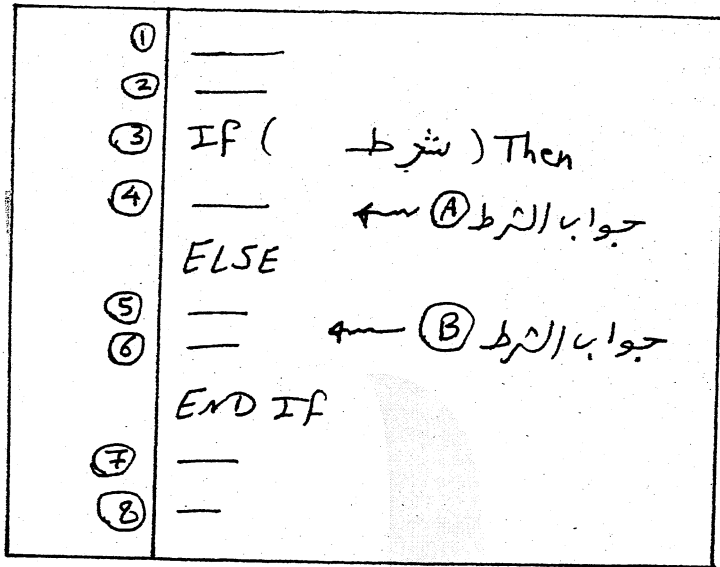 ①
②
③ If ( شرط ) Then
④ جواب الشرط Ⓐ
ELSE
⑤
⑥ جواب الشرط Ⓑ
END If
⑦
⑧